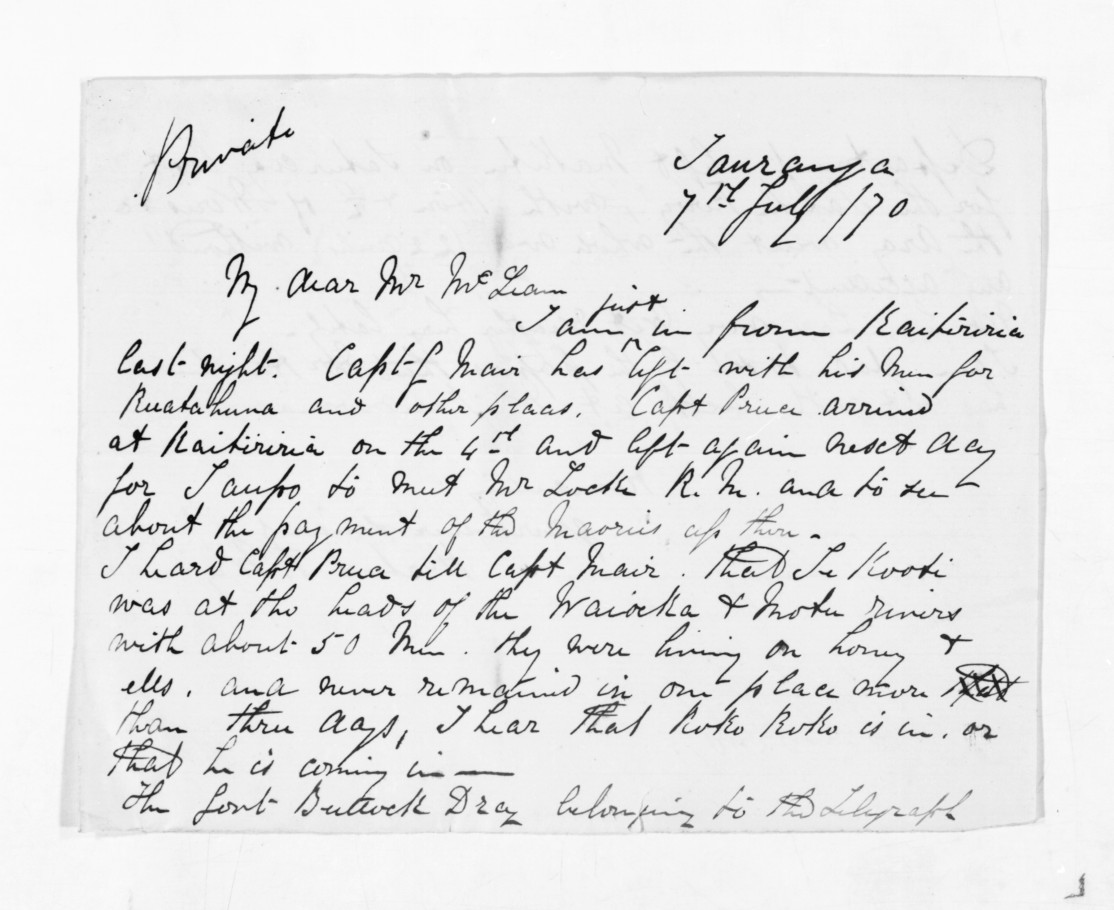 Private
Tauranga
7th July /70
My dear Mr McLean
I am just in from Kaitiriria
last night. Capt G Mair has left with his Men for
Ruatahuna and other places. Capt Preece arrived
at Kaitiriria on the 4th and left again next day
for Taupo to meet Mr Locke R.M. and to see
about the payment of the Maories up there.
I heard Capt Preece tell Capt Mair. that Te Kooti
was at the heads of the Waioeka & Motu rivers
with about 50 Men. they were living on honey &
ells. and never remained in one place more
than three days, I hear that Koko Koko is in. or
that he is coming in —
The Govt Bullock Dray belonging to the Telegraph